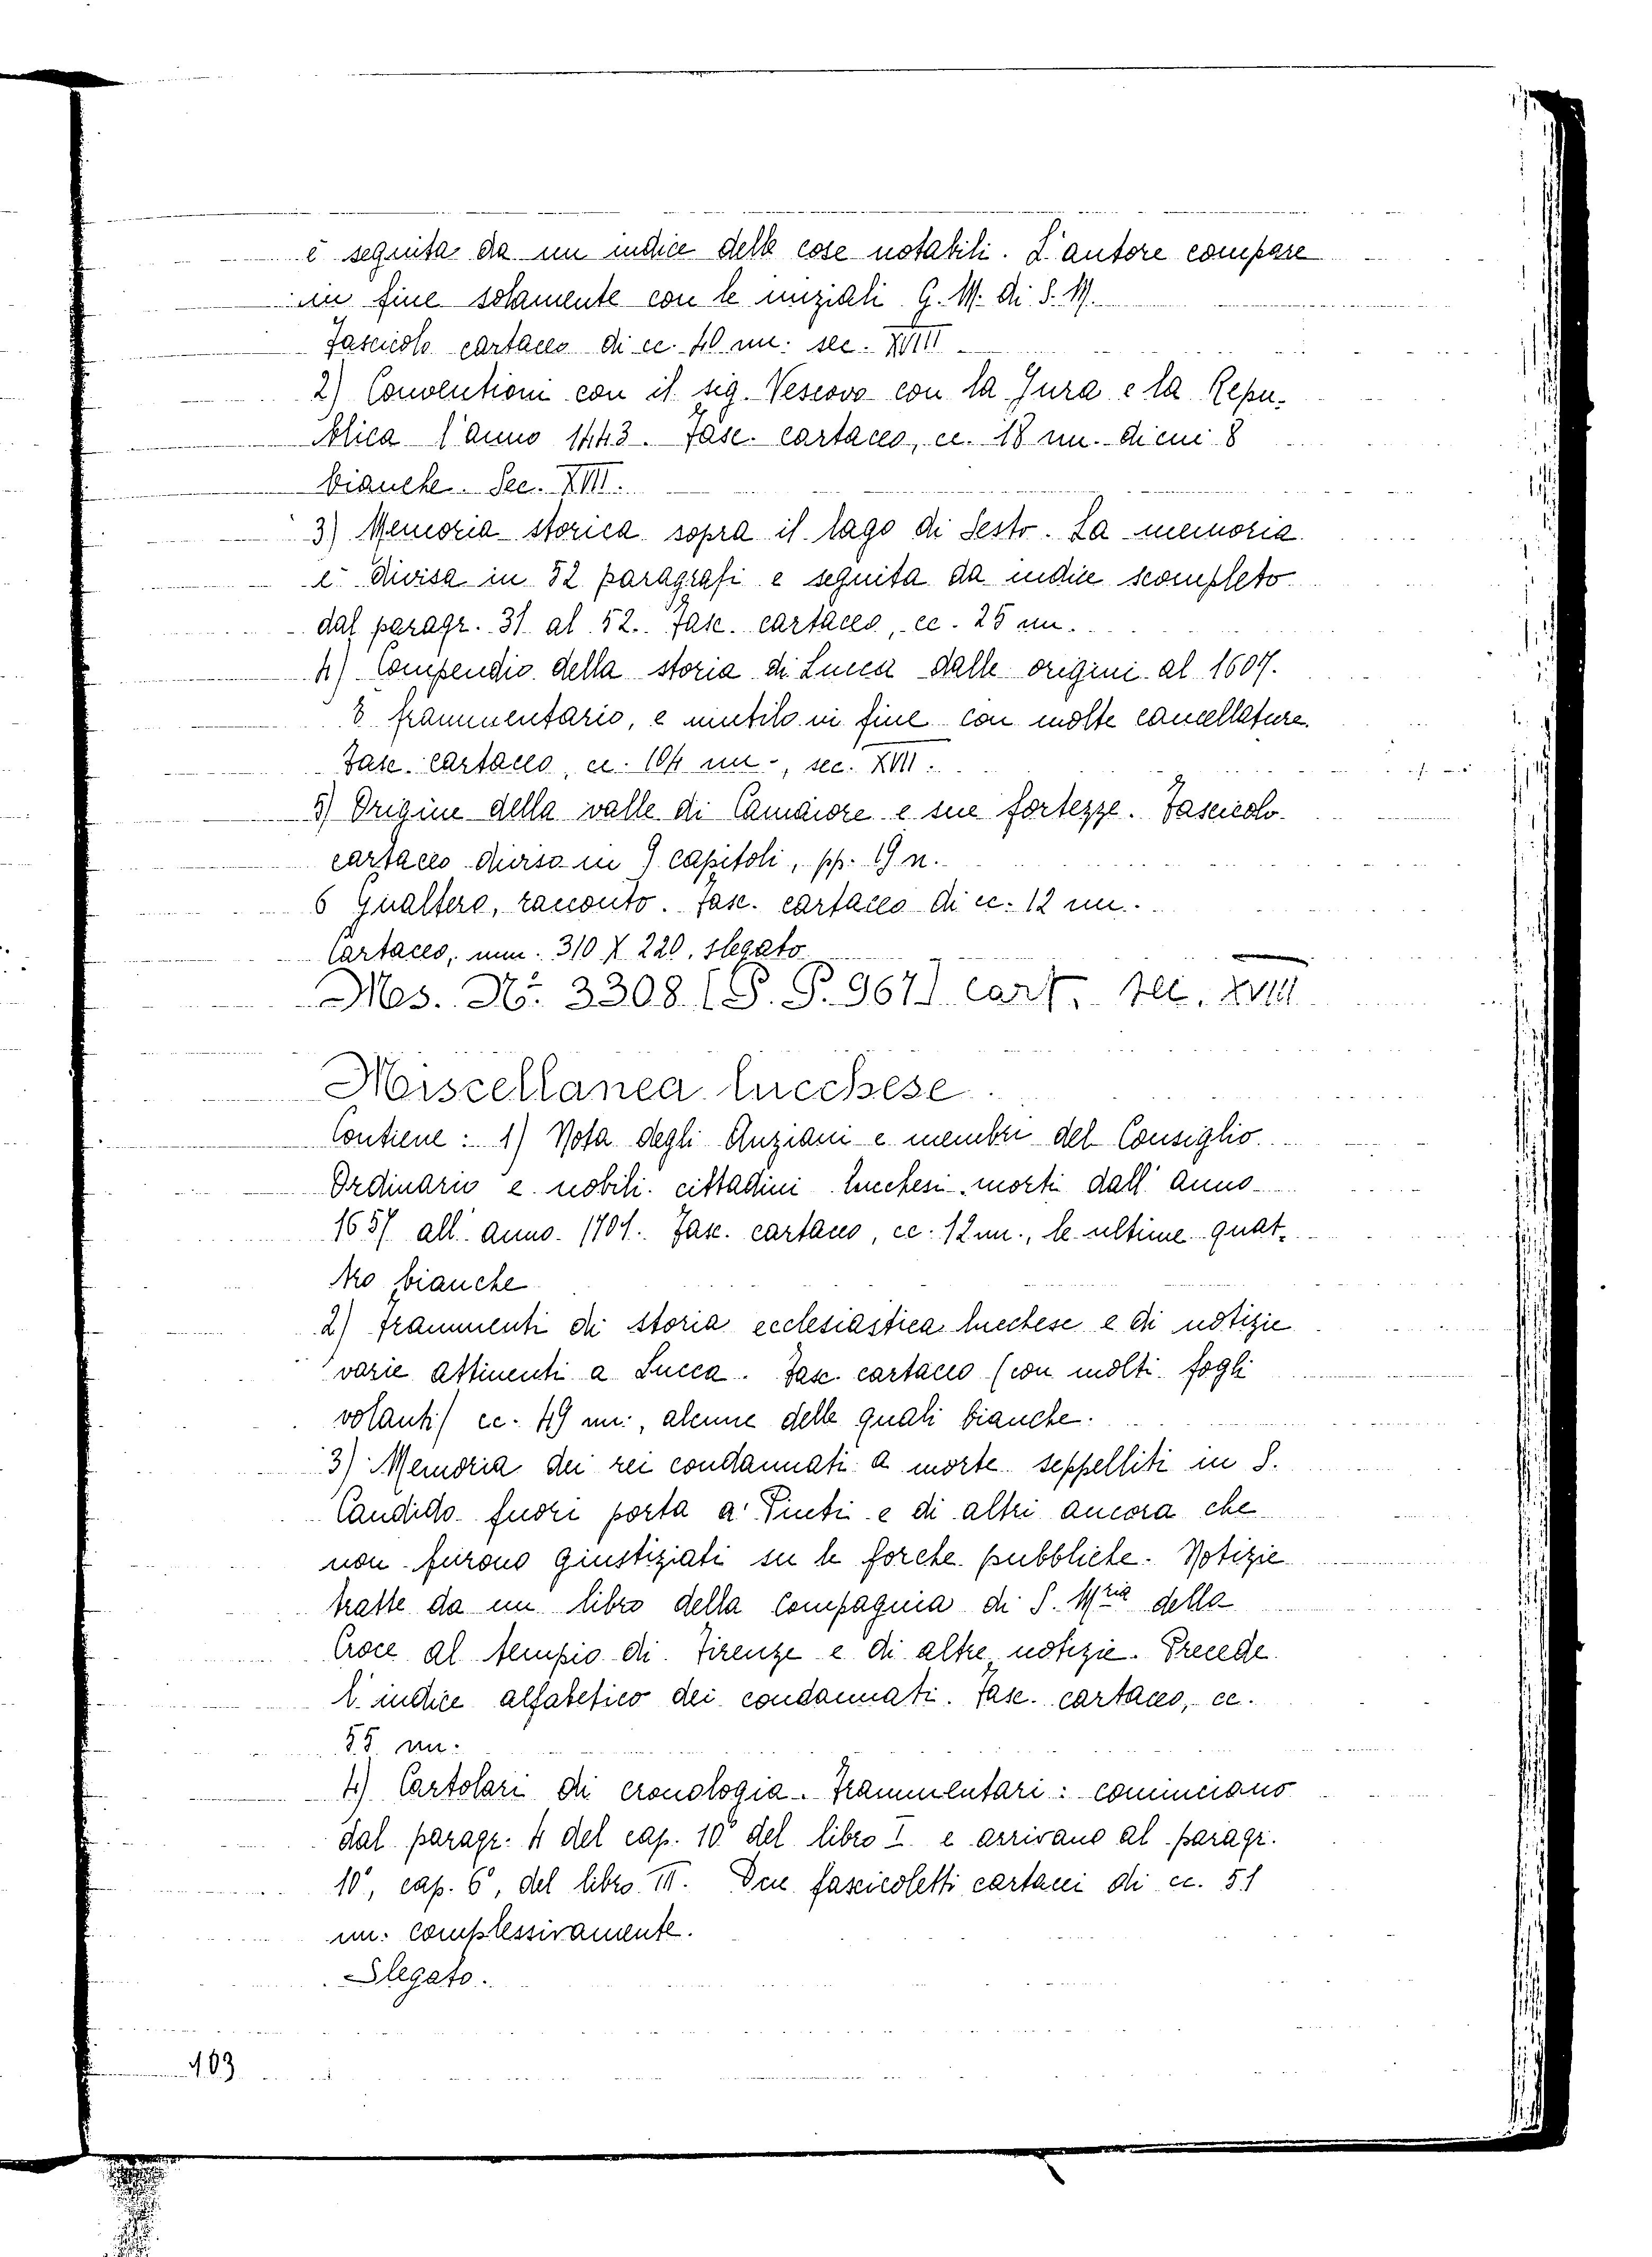 è seguita da un indice delle cose notabili. L'autore compare
in fine solamente con le iniziali G. M. di S. M.
Fascicolo cartaceo di cc. 40 nn. sec. XVIII
2) Conventioni con il sig. Vescovo con la Jura e la Repu-
blica l'anno 1443. Fasc. cartaceo, cc. 18 nn. di cui 8
bianche. Sec. XVII.
3) Memoria storica sopra il lago di Sesto. La memoria
è divisa in 52 paragrafi e seguita da indice scompleto
dal paragr. 31 al 52. Fasc. cartaceo, cc. 25 nn.
4) Compendio della storia di Lucca dalle origini al 1607.
È frammentario, e mutilo in fine con molte cancellature.
Fasc. cartaceo, cc. 104 nn., sec. XVII.
5) Origine della valle di Camaiore e sue fortezze. Fascicolo
cartaceo diviso in 9 capitoli, pp. 19 n.
6 Gualtero, racconto. Fasc. cartaceo di cc. 12 nn.
Cartaceo, mm. 310 X 220. slegato
Mss. N° 3308 (P. P. 967) cart. sec. XVIII
Miscellanea lucchese.
Contiene: 1) Nota degli Anziani e membri del Consiglio
Ordinario e nobili cittadini lucchesi morti dall'anno
1657 all'anno 1701. Fasc. cartaceo, cc. 12 nn., le ultime quat-
tro bianche
2) Frammenti di storia ecclesiastica lucchese e di notizie
varie attinenti a Lucca. Fasc. cartaceo (con molti fogli
volanti) cc. 49 nn., alcune delle quali bianche.
3) Memoria dei rei condannati a morte seppelliti in S.
Candido fuori porta a' Pinti e di altri ancora che
non furono giustiziati su le forche pubbliche. Notizie
tratte da un libro della Compagnia di S. Mria della
Croce al tempio di Firenze e di altre notizie. Precede
l'indice alfabetico dei condannati. Fasc. cartaceo, cc.
55 nn.
4) Cartolari di cronologia. Frammentari: cominciano
dal paragr. 4 del cap. 10° del libro I e arrivano al paragr.
10°, cap. 6°, del libro III. Due fascicoletti cartacei di cc. 51
nn. complessivamente.
Slegato.
103